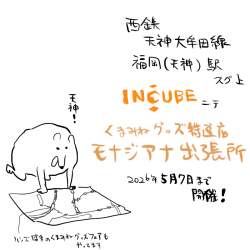 西鉄
天神大牟田線
福岡(天神)駅
スグ上
INCUBE ニテ
くまみねグッズ特選店
モナジアナ出張所
2026年5月7日まで
開催!
天神!
くまみねグッズフェアも
やってます